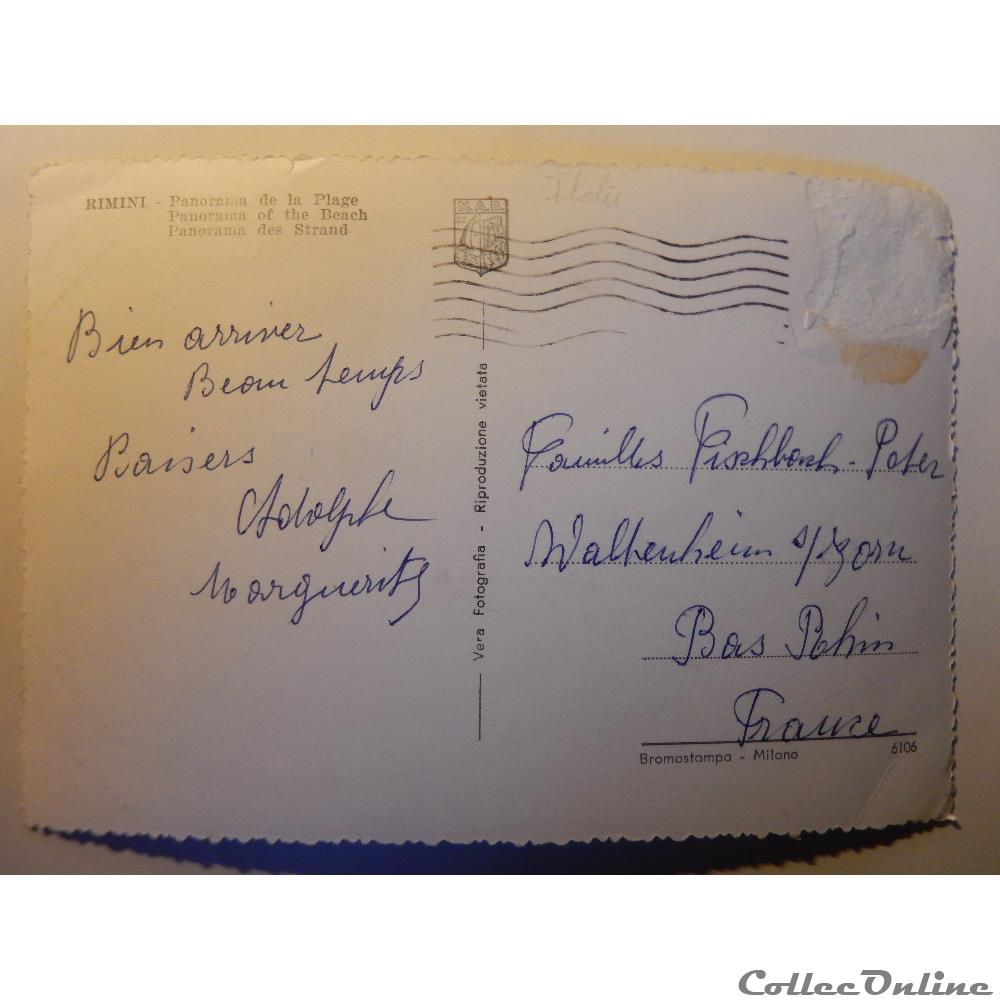 RIMINI - Panorama de la Plage
Panorama of the Beach
Panorama des Strand
Italie
Bien arriver
Beau temps
Baisers
Adolphe
Marguerite
Vera Fotografia - Riproduzione vietata
Familles Fischbach-Peter
Waltenheim s/Zorn
Bas Rhin
France
Bromostampa - Milano
6106
CollecOnline